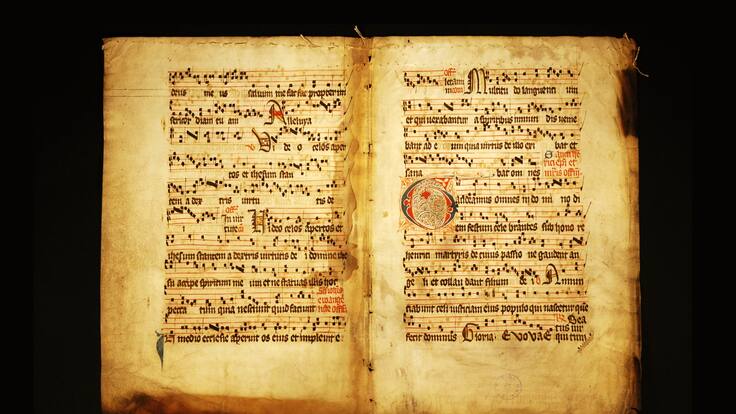 deus me us saluum me fac propter mi
sericor diam tu am Alleluya
Vi de o celos aper
tos et ihesum stan
tem a dex tris uirtu tis de
i Video celos apertos et
ihesum stantem a dextris uirtutis de i domine ihe
su accipe spiritum me um et ne statuas illis hoc
pecca tum quia nesciunt quid faciunt
In medio ecclesie aperuit os eius et impleuit e
Multitu do languenti um
et qui uexabantur a spiritibus inmun dis uenie
bant ad e um quia uirtus de illo exi bat et
sana bat om nes
Gaudeamus omnes in do mi no di
em festum cele brantes sub hono re
martyris de cuius passio ne gaudent an
ge li et collau dant filium de i Annun
ciabunt celi iusticiam eius populo qui nascetur que
fecit dominus Gloria. EVOVAE
Bea
tus uir
qui tim